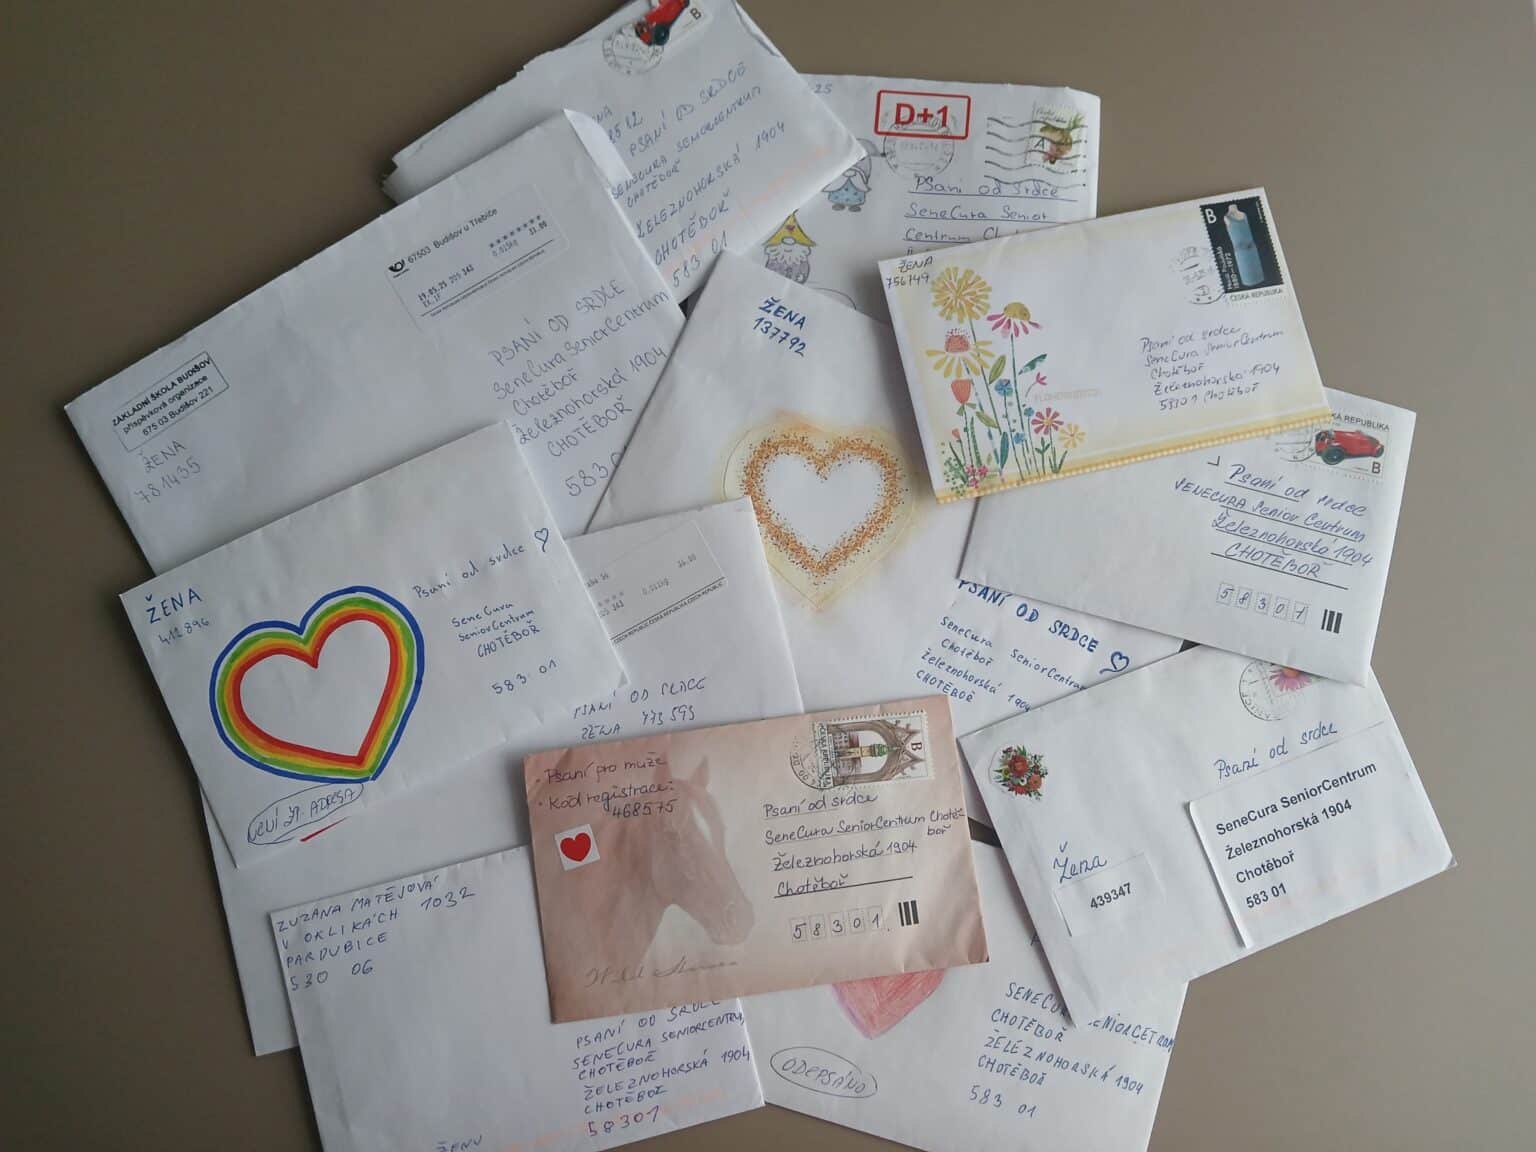 B
PSANÍ OD SRDCE
SENECURA SENIORCENTRUM
CHOTĚBOŘ
ŽELEZNOHORSKÁ 1904
CHOTĚBOŘ
583 01
25
D+1
A
Psaní od srdce
SeneCura Senior
Centrum
67503 Budišov u Třebíče
31.00
0.015kg
19.05.25 205 343
ZÁKLADNÍ ŠKOLA BUDIŠOV
příspěvková organizace
675 03 Budišov 221
ŽENA
781435
PSANÍ OD SRDCE
SeneCura SeniorCentrum
Chotěboř
Železnohorská 1904
CHOTĚBOŘ
583 0
ŽENA
137792
PSANÍ OD SRDCE
SeneCura SeniorCentrum
Chotěboř
Železnohorská 1904
CHOTĚBOŘ
ŽENA
756749
B
ČESKÁ REPUBLIKA
Psaní od srdce
SeneCura SeniorCentrum
Chotěboř
Železnohorská 1904
58301 Chotěboř
KÁ REPUBLIKA
B
Psaní od srdce
SENECURA Senior Centrum
Železnohorská 1904
CHOTĚBOŘ
58301
ŽENA
412896
Psaní od srdce
SeneCura
SeniorCentrum
CHOTĚBOŘ
583 01
NENÍ ZP. ADRESA
0.012kg
PSANÍ OD SRDCE
ŽENA 473593
• Psaní pro muže
• Kód registrace:
468575
B
Psaní od srdce
SeneCura SeniorCentrum Chotě-
boř
Železnohorská 1904
Chotěboř
58301
Psaní od srdce
SeneCura SeniorCentrum
Železnohorská 1904
Chotěboř
583 01
Žena
439347
ZUZANA MATĚJOVÁ
V OKLIKÁCH 1032
PARDUBICE
530 06
PSANÍ OD SRDCE
SENECURA SENIORCENTRUM,
CHOTĚBOŘ
ŽELEZNOHORSKÁ 1904
CHOTĚBOŘ
58301
ŽENU
ODEPSÁNO
CHOTĚBOŘ
ŽELEZNOHORSKÁ 1904
CHOTĚBOŘ
583 01